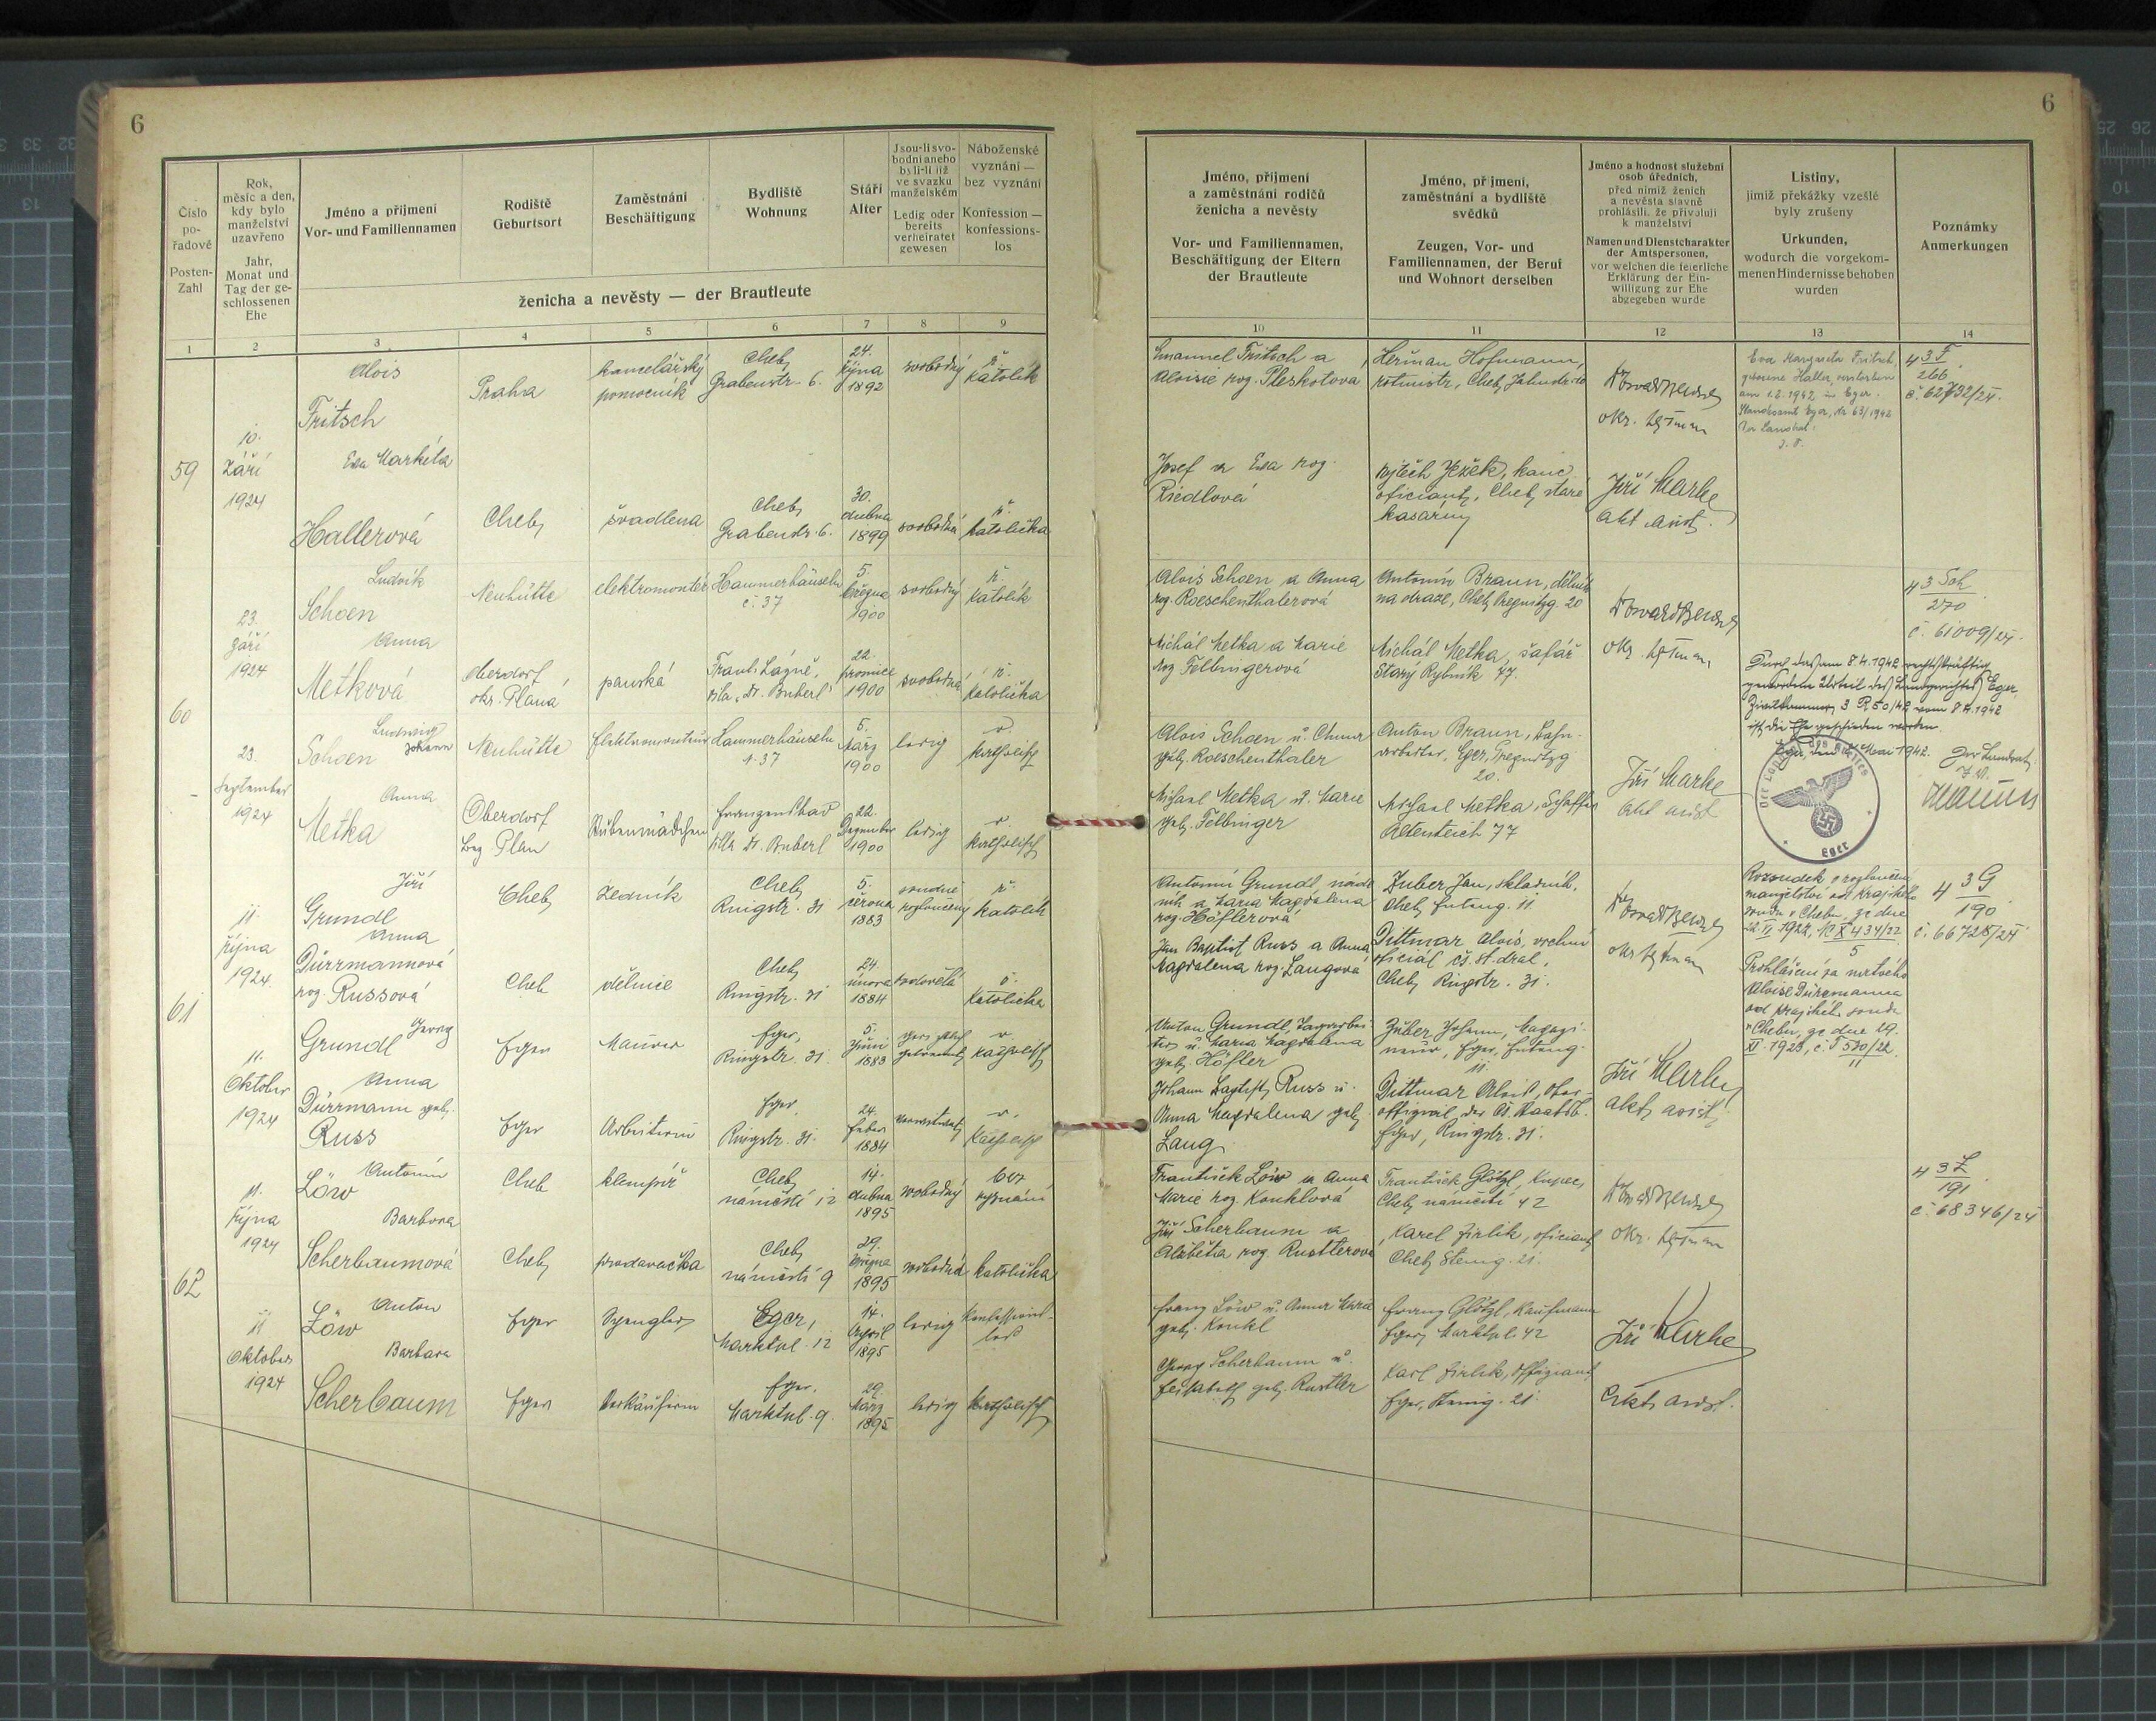 6
6
Číslo pořadové
Posten-Zahl
Rok, měsíc a den, kdy bylo manželství uzavřeno
Jahr, Monat und Tag der geschlossenen Ehe
Jméno a příjmení
Vor- und Familiennamen
Rodiště
Geburtsort
Zaměstnání
Beschäftigung
Bydliště
Wohnung
Stáří
Alter
Jsou-li svobodni anebo byli-li již ve svazku manželském
Ledig oder bereits verheiratet gewesen
Náboženské vyznání — bez vyznání
Konfession — konfessionslos
ženicha a nevěsty — der Brautleute
Jméno, příjmení a zaměstnání rodičů ženicha a nevěsty
Vor- und Familiennamen, Beschäftigung der Eltern der Brautleute
Jméno, příjmení, zaměstnání a bydliště svědků
Zeugen, Vor- und Familiennamen, der Beruf und Wohnort derselben
Jméno a hodnost služební osob úředních, před nimiž ženich a nevěsta slavně prohlásili, že přivolují k manželství
Namen und Dienstcharakter der Amtspersonen, vor welchen die feierliche Erklärung der Einwilligung zur Ehe abgegeben wurde
Listiny, jimiž překážky vzešlé byly zrušeny
Urkunden, wodurch die vorgekommenen Hindernisse behoben wurden
Poznámky
Anmerkungen
1 2 3 4 5 6 7 8 9 10 11 12 13 14
59
10. září 1924
Alois Fritsch
Praha
kancelářský pomocník
Cheb, Grabenstr. 6.
24. října 1892
svobodný
ř. katolík
Emanuel Fritsch a Aloisie roz. Pleskotova
Heřman Hofmann, rotmistr, Cheb, Jahnstr. 10
okr. hejtman
Eva Margareta Fritsch, geborene Haller, verstorben am 1.2.1942 in Eger.
Standesamt Eger, Nr 63/1942
Der Landrat:
J. V.
4 3 F/266
č. 62732/24.
Eva Markéta Hallerová
Cheb
švadlena
Cheb, Grabenstr. 6.
30. dubna 1899
svobodná
ř. katolička
Josef a Eva roz. Riedlová
Vojtěch Ježek, kanc. oficiant, Cheb, staré kasárny
Jiří Marke
akt. asist.
60
23. září 1924
Ludvík Schoen
Neuhütte
elektromontér
Hammerhäuseln č. 37
5. března 1900
svobodný
ř. katolík
Alois Schoen a Anna roz. Roeschenthalerová
Antonín Braun, dělník na dráze, Cheb, Pregnitzg. 20
okr. hejtman
4 3 Sch/270
č. 61009/24.
Anna Metková
Oberdorf okr. Planá
panská
Frant. Lázně, vila „Dr. Buberl"
22. prosince 1900
svobodná
ř. katolička
Michál Metka a Marie roz. Felbingerová
Michál Metka, šafář Starý Rybník 77.
Durch das am 8.4.1942 rechtskräftig
gewordene Urteil des Landgerichtes Eger
Zivilkammer 3 R 50/42 vom 8.4.1942
ist die Ehe geschieden worden.
Eger, den Mai 1942. Der Landrat
J. V.
Eger
23. September 1924
Ludwig Johann Schoen
Neuhütte
Elektromonteur
Hammerhäuseln N. 37
5. März 1900
ledig
r. katholisch
Alois Schoen u. Anna geb. Roeschenthaler
Anton Braun, Bahnarbeiter, Eger, Pregnitzg 20.
Jiří Marke
akt. asist
Anna Metka
Oberdorf Bez. Plan
Stubenmädchen
Franzensbad Villa Dr. Buberl
22. Dezember 1900
ledig
r. katholisch
Michael Metka u. Marie geb. Felbinger
Michael Metka, Schaffer Altenteich 77
61
11. října 1924
Jiří Grundl
Cheb
zedník
Cheb, Ringstr. 31
5. června 1883
soudně rozloučený
ř. katolík
Antonín Grundl, a Maria Magdalena roz. Höflerová
Zuber Jan, skladník, Cheb, 11
okr. hejtman
Rozsudek o rozloučení manželství od krajského soudu v Chebu, ze dne
4 3 G/190
č. 66728/24
Anna Dürrmannová roz. Russová
Cheb
dělnice
Cheb, Ringstr. 31
24. února 1884
ovdovělá
ř. katolička
Jan Baptist Russ a Anna Magdalena roz. Langová
Dittmar Alois, vrchní oficiál čs. st. drah, Cheb, Ringstr. 31.
Prohlášení za mrtvého Aloise Dürrmanna od krajského soudu v Chebu, ze dne 29.
11. Oktober 1924
Georg Grundl
Eger
Maurer
Eger, Ringstr. 31.
5. Juni 1883
r. katholisch
Anton Grundl, u. Maria Magdalena geb. Höfler
Zuber Johann, Magazineur, Eger, 11
Jiří Marke
akt. asist.
Anna Dürrmann geb. Russ
Eger
Arbeiterin
Eger Ringstr. 31.
24. Feber 1884
verwitwet
r. katholisch
Johann Baptist Russ u. Anna Magdalena geb. Lang
Dittmar Alois, Ober-offizial der čs. Staatsb. Eger, Ringstr. 31.
62
11. října 1924
Antonín Löw
Cheb
klempíř
Cheb, náměstí 12
14. dubna 1895
svobodný
bez vyznání
František Löw a Anna Marie roz. Konklová
František Glötzl, kupec, Cheb, náměstí 42
okr. hejtman
4 3 L/191
č. 68346/24
Barbora Scherbaumová
Cheb
prodavačka
Cheb, náměstí 9
29. března 1895
svobodná
katolička
Jiří Scherbaum a Alžběta roz. Rustlerová
Karel Zirlik, oficiant, Cheb, Steing. 21.
11 Oktober 1924
Anton Löw
Eger
Spengler
Eger, Marktpl. 12
14. April 1895
ledig
konfessionslos
Franz Löw u. Anna Marie geb. Konkl
Franz Glötzl, Kaufmann Eger, Marktpl. 42
Jiří Marke
akt. asist.
Barbara Scherbaum
Eger
Verkäuferin
Eger, Marktpl. 9.
29. März 1895
ledig
katholisch
Georg Scherbaum u. Elisabeth geb. Rustler
Karl Zirlik, Offiziant Eger, Steing. 21.